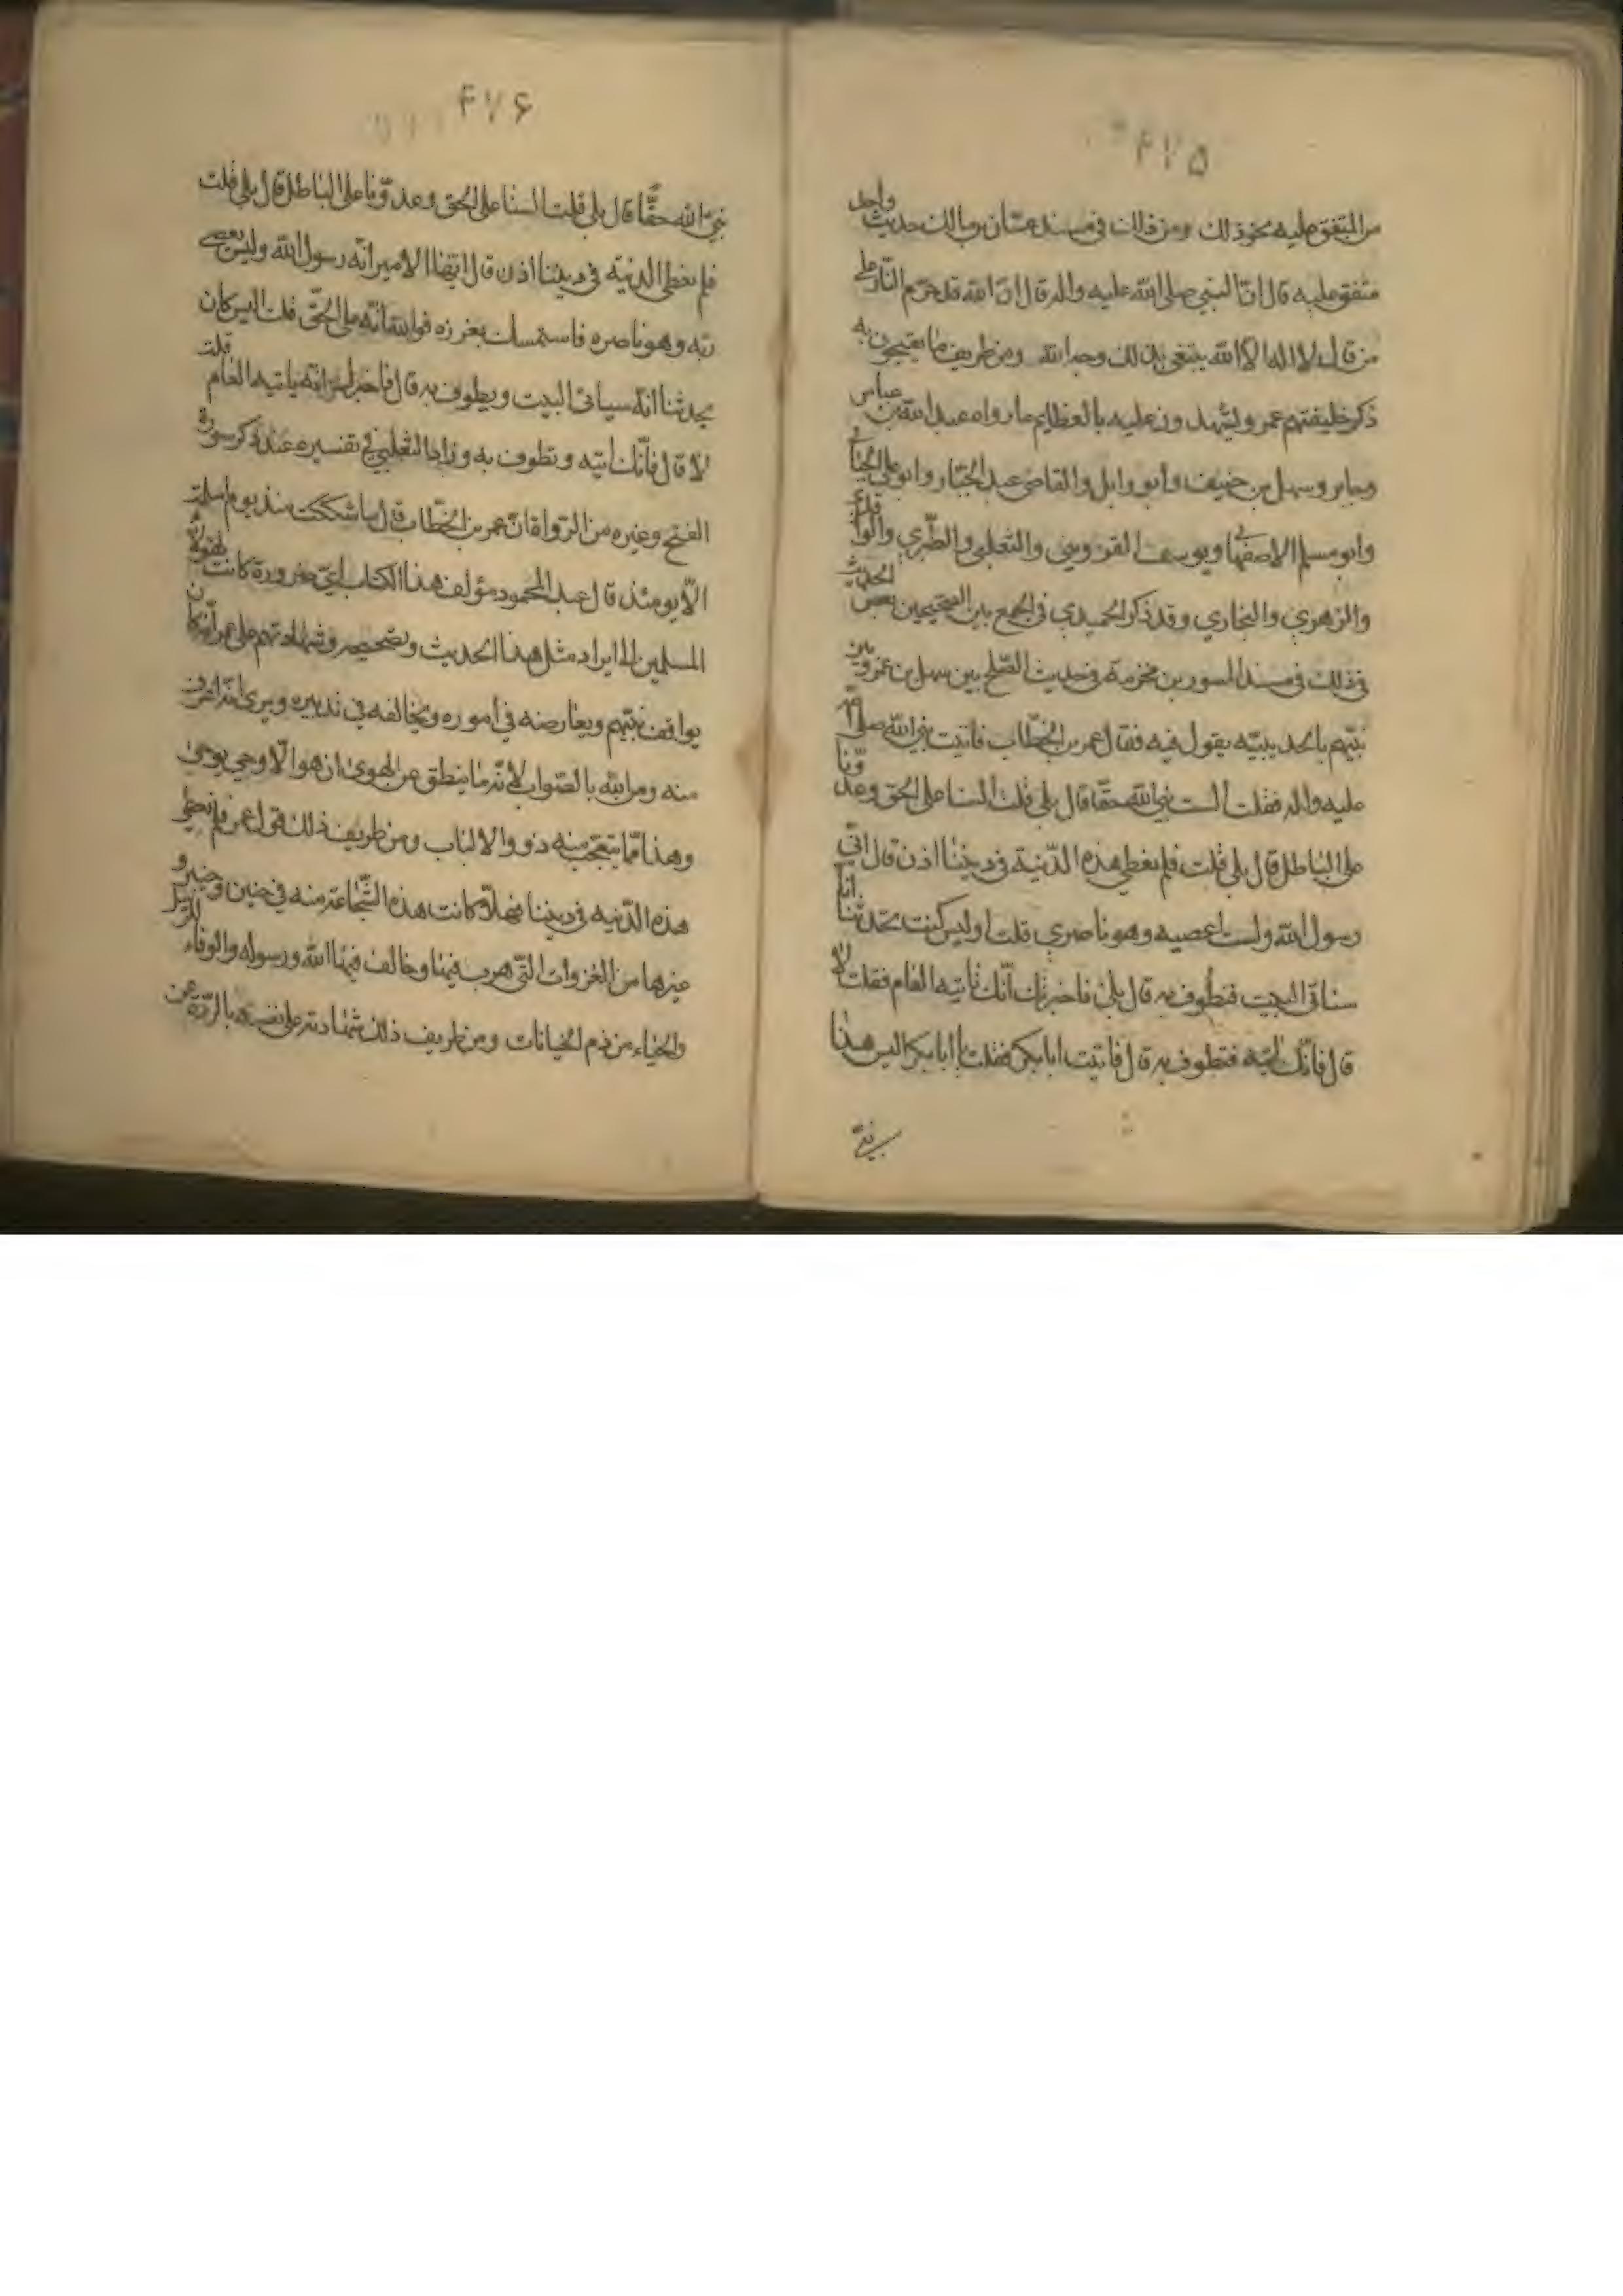 ۴۷۵
من المتفق عليه نحو ذلك ومن ذلك في مسند عتبان بن مالك حديث واحد
متفق عليه قال انّ النبي صلى الله عليه واله قال انّ الله قد حرّم النّار على
من قال لا اله الاّ الله يبتغي بذلك وجه الله ومن طريف ما يقبحون به
ذكر خليفتهم عمر ويشهدون عليه بالعظايم ما رواه عبد الله بن عباس
وجابر وسهل بن حنيف وابو وايل والقاضي عبد الجبّار وابو علي الجبّائي
وابو مسلم الاصفهاني ويوسف القزويني والثعلبي والطّبري والواقدي
والزهري والبخاري وقد ذكر الحميدي في الجمع بين الصحيحين بعض الحديث
في ذلك في مسند المسور بن مخرمة في حديث الصّلح بين سهل بن عمرو وبين
نبيّهم بالحديبيّه يقول فيه فقال عمر بن الخطّاب فاتيت نبيّ الله صلى الله
عليه واله فقلت الست نبيّ الله حقّا قال بلى قلت السنا على الحق وعدوّنا
على الباطل قال بلى قلت فلم نعطي هذه الدّنية في ديننا اذن قال انّي
رسول الله ولست اعصيه وهو ناصري قلت اوليس كنت تحدثنا انا
سناتي البيت فنطوف به قال بلى فاخبرتك انّك تاتيه العام فقلت لا
قال فانّك اتيه فتطوف به قال فاتيت ابا بكر فقلت يا ابا بكر اليس هذا
نبيّ
۴۷۶
نبيّ الله حقّا قال بلى قلت السنا على الحق وعدوّنا على الباطل قال بلى قلت
فلم نعطي الدنية في ديننا اذن قال ايّها الامير انّه رسول الله وليس يعصي
ربّه وهو ناصره فاستمسك بغرزه فوالله انّه على الحقّ قلت اليس كان
يحدثنا انّه سياتي البيت ويطوف به قال فاخبرك انّه ياتيه العام قلت
لا قال فانّك اتيه وتطوف به وزاد الثعلبي في تفسيره عند ذكر سورة
الفتح وغيره من الرّواة انّ عمر بن الخطّاب قال ما شككت منذ يوم اسلمت
الاّ يومئذ قال عبد المحمود مؤلف هذا الكتاب ايّ ضرورة كانت لهؤلاء
المسلمين الى ايراد مثل هذا الحديث وتصحيحه وشهادتهم على عمر انّه كان
يواقف نبيّهم ويعارضه في اموره ويخالفه في تدبيره ويرى انّه اعرف
منه ومن الله بالصّواب لانّه ما ينطق عن الهوى ان هو الاّ وحي يوحى
وهذا ممّا يتعجّب منه ذووا الالباب ومن طريف ذلك قول عمر فلم نعطي
هذه الدّنيه في ديننا فهلاّ كانت هذه الشّجاعة منه في حنين وخيبر و
غيرها من الغزوات التّي هرب فيها وخالف فيها الله ورسوله والوفاء
والحياء من ذم الخيانات ومن طريف ذلك شهادته على نفسه بالرّدّة عن